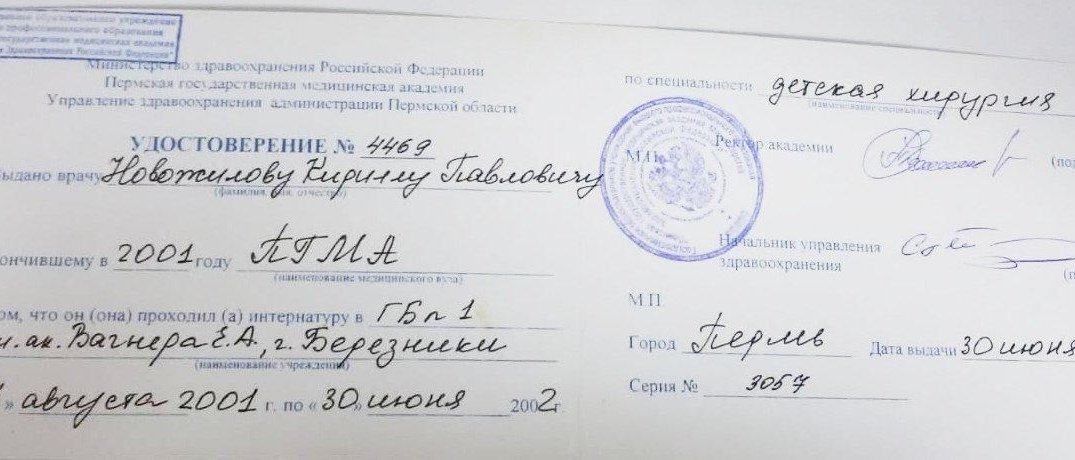 образовательного учреждения
профессионального образования
государственная медицинская академия
Здравоохранения Российской Федерации"
Министерство здравоохранения Российской Федерации
Пермская государственная медицинская академия
Управление здравоохранения администрации Пермской области
УДОСТОВЕРЕНИЕ № 4469
ыдано врачу Новожилову Кириллу Павловичу
(фамилия, имя, отчество)
ончившему в 2001 году ПГМА
(наименование медицинского вуза)
ом, что он (она) проходил (а) интернатуру в ГБ № 1
им. ак. Вагнера Е.А., г. Березники
(наименование учреждения)
» августа 2001 г. по « 30 » июня 2002 г.
по специальности детская хирургия
(наименование специальности)
Ректор академии (по
М.П.
Начальник управления
здравоохранения (п
М П
Город Пермь Дата выдачи 30 июня
Серия № 3057